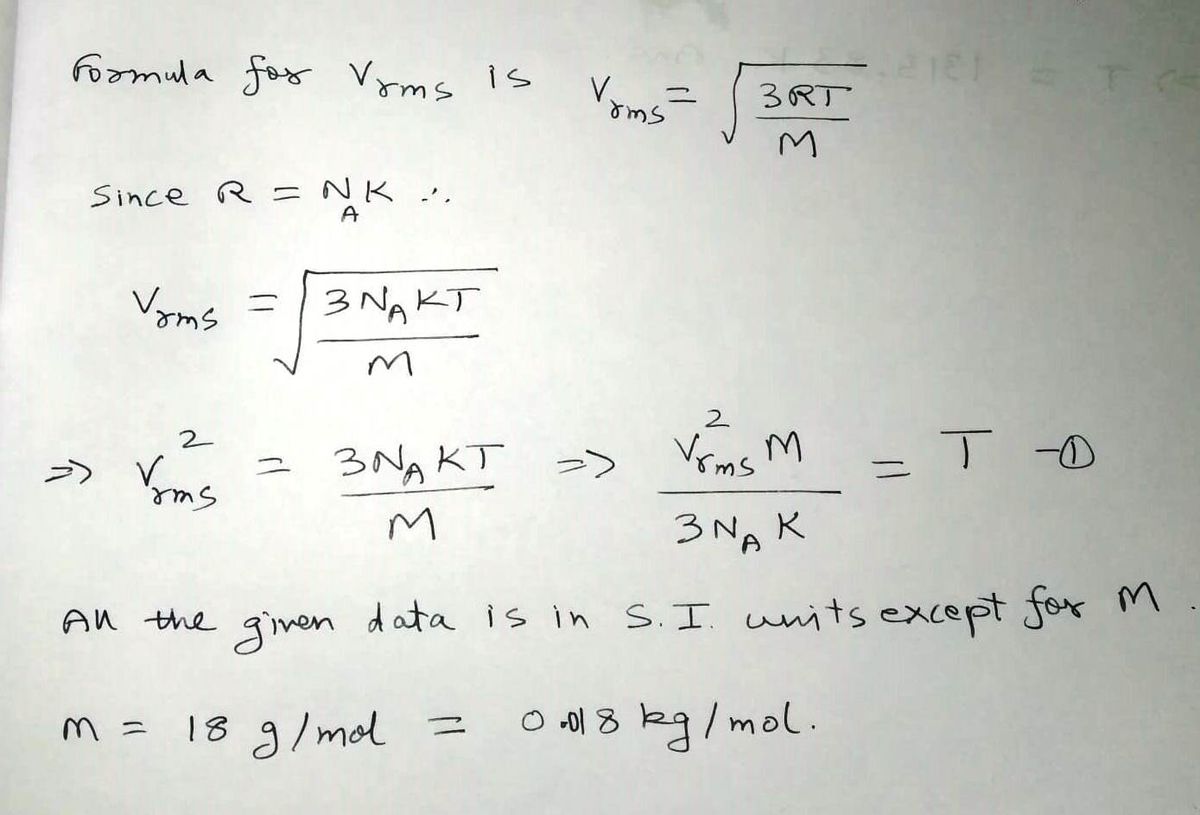 Formula for Vrms is Vrms = √(3RT/M)
Since R = N_A K ∴
Vrms = √(3N_A KT/M)
=> V²rms = 3N_A KT/M => V²rms M/3N_A K = T -①
All the given data is in S.I. units except for M.
M = 18 g/mol = 0.018 kg/mol.